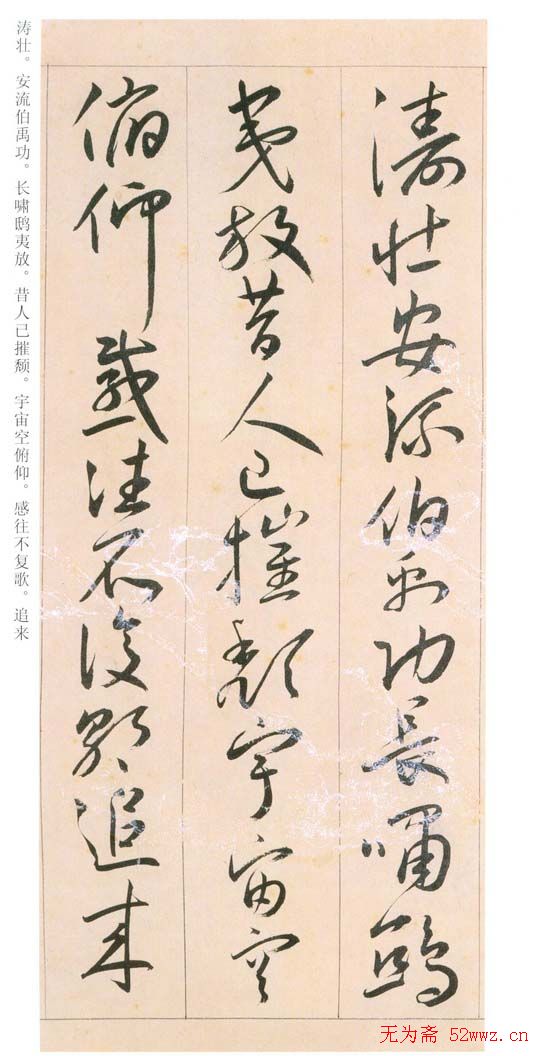 濤壮安流伯禹功長嘯鴟
夷放昔人已摧頹宇宙空
俯仰感往不復歌追来
涛壮。安流伯禹功。长啸鸱夷放。昔人已摧颓。宇宙空俯仰。感往不复歌。追来
无为斋 52wwz.cn